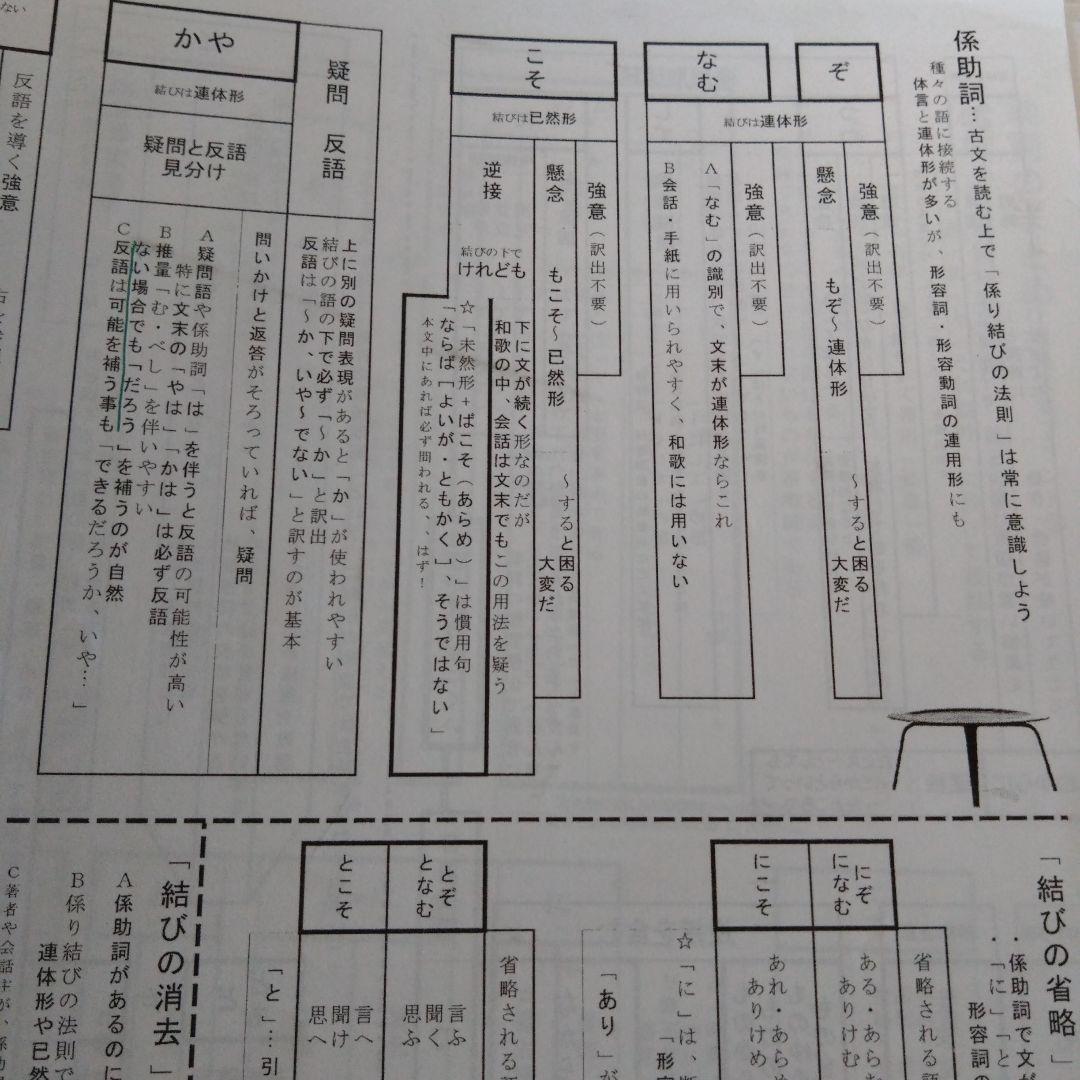 係助詞…古文を読む上で「係り結びの法則」は常に意識しよう
種々の語に接続する
体言と連体形が多いが、形容詞・形容動詞の連用形にも
ぞ
なむ
結びは連体形
強意(訳出不要)
懸念 もぞ〜連体形 〜すると困る
大変だ
強意(訳出不要)
A「なむ」の識別で、文末が連体形ならこれ
B会話・手紙に用いられやすく、和歌には用いない
こそ
結びは已然形
強意(訳出不要)
懸念 もこそ〜已然形 〜すると困る
大変だ
逆接 結びの下で
けれども
下に文が続く形なのだが
和歌の中、会話は文末でもこの用法を疑う
☆「未然形+ばこそ(あらめ)」は慣用句
「ならば[よいが・ともかく]、そうではない」
本文中にあれば必ず問われる、、はず!
かや
結びは連体形
疑問 反語
上に別の疑問表現があると「か」が使われやすい
結びの語の下で必ず「〜か」と訳出
反語は「〜か、いや〜でない」と訳すのが基本
疑問と反語
見分け
問いかけと返答がそろっていれば、疑問
A疑問語や係助詞「は」を伴うと反語の可能性が高い
特に文末の「やは」「かは」は必ず反語
B推量「む・べし」を伴いやすい
ない場合でも「だろう」を補うのが自然
C反語は可能を補う事も「できるだろうか、いや…」
ない
反語を導く強意
「結びの省略」
・係助詞で文が
・「に」「と
形容詞の
にぞ
になむ
にこそ
省略される語
ある・あらむ
ありけむ
あれ・あらめ
ありけめ
☆「に」は、
「形容
「あり」が
とぞ
となむ
とこそ
省略される語
言ふ
聞く
思ふ
言へ
聞け
思へ
「と」…引
「結びの消去」
A係助詞があるのに
B係り結びの法則で
連体形や已然
C著者や会話主が、係助